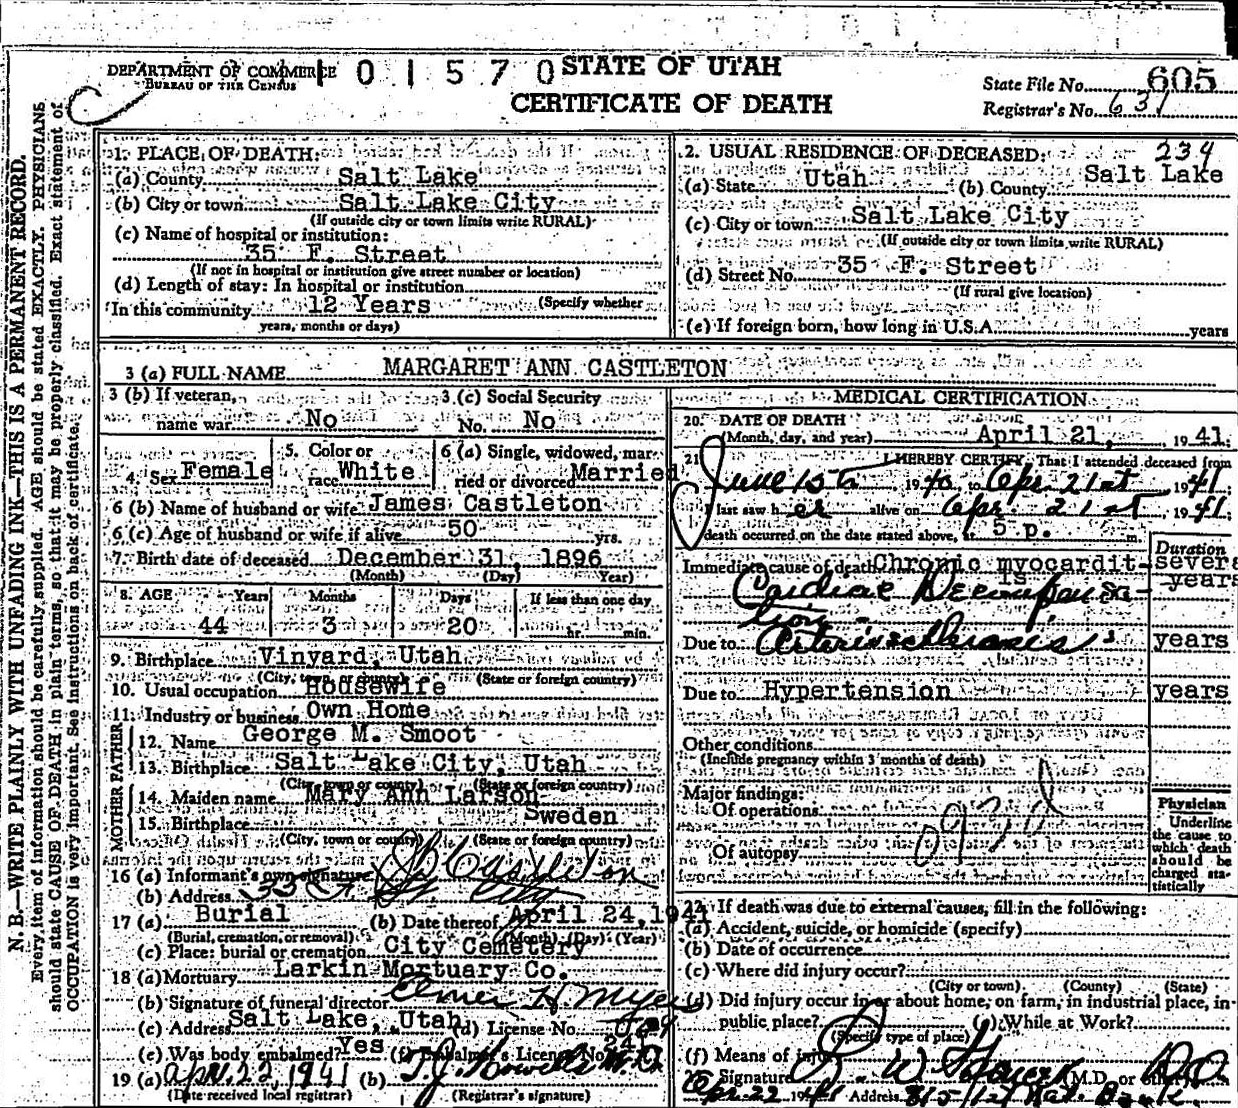 DEPARTMENT OF COMMERCE
BUREAU OF THE CENSUS
101570
STATE OF UTAH
CERTIFICATE OF DEATH
State File No. 605
Registrar's No. 631
N. B.—WRITE PLAINLY WITH UNFADING INK—THIS IS A PERMANENT RECORD.
Every item of information should be carefully supplied. AGE should be stated EXACTLY. PHYSICIANS
should state CAUSE OF DEATH in plain terms, so that it may be properly classified. Exact statement of
OCCUPATION is very important. See instructions on back of certificate.
1. PLACE OF DEATH:
(a) County Salt Lake
(b) City or town Salt Lake City
(If outside city or town limits write RURAL)
(c) Name of hospital or institution:
35 F. Street
(If not in hospital or institution give street number or location)
(d) Length of stay: In hospital or institution
In this community 12 Years (Specify whether
years, months or days)
2. USUAL RESIDENCE OF DECEASED: 234
(a) State Utah (b) County Salt Lake
(c) City or town Salt Lake City
(If outside city or town limits, write RURAL)
(d) Street No. 35 F. Street
(If rural give location)
(e) If foreign born, how long in U.S.A. years
3 (a) FULL NAME MARGARET ANN CASTLETON
3 (b) If veteran, name war No
3 (c) Social Security No. No
4. Sex Female
5. Color or race White
6 (a) Single, widowed, married or divorced Married
6 (b) Name of husband or wife James Castleton
6 (c) Age of husband or wife if alive 50 yrs.
7. Birth date of deceased December 31, 1896
(Month) (Day) (Year)
8. AGE Years Months Days If less than one day
44 3 20 hr. min.
9. Birthplace Vinyard, Utah
(City, town, or county) (State or foreign country)
10. Usual occupation Housewife
11. Industry or business Own Home
FATHER
12. Name George M. Smoot
13. Birthplace Salt Lake City, Utah
(City, town or county) (State or foreign country)
MOTHER
14. Maiden name Mary Ann Larson
15. Birthplace Sweden
(City, town or county) (State or foreign country)
16 (a) Informant's own signature Castleton
(b) Address 35 F. St. City
17 (a) Burial (b) Date thereof April 24, 1941
(Burial, cremation, or removal) (Month) (Day) (Year)
(c) Place: burial or cremation City Cemetery
18 (a) Mortuary Larkin Mortuary Co.
(b) Signature of funeral director Elmer H. Myers
(c) Address Salt Lake, Utah (d) License No.
(e) Was body embalmed? Yes (f) Embalmer's License No. 241
19 (a) Apr. 22, 1941 (b) T.J. Howells M.D.
(Date received local registrar) (Registrar's signature)
MEDICAL CERTIFICATION
20. DATE OF DEATH
(Month, day, and year) April 21, 1941
21. I HEREBY CERTIFY, That I attended deceased from
June 15th 1940, to Apr. 21st, 1941
I last saw her alive on Apr. 21st, 1941
death occurred on the date stated above, at 5 p. m.
Duration
Immediate cause of death Chronic myocarditis several years
Cardiac Decompensation
Due to Arteriosclerosis years
Due to Hypertension years
Other conditions
(Include pregnancy within 3 months of death)
Major findings:
Of operations
Of autopsy
093d
Physician
Underline
the cause to
which death
should be
charged statistically
22. If death was due to external causes, fill in the following:
(a) Accident, suicide, or homicide (specify)
(b) Date of occurrence
(c) Where did injury occur?
(City or town) (County) (State)
(d) Did injury occur in or about home, on farm, in industrial place, in
public place? (e) While at Work?
(Specify type of place)
(f) Means of injury
Signature (M.D. or other) D.O.
Apr. 22 1941 Address